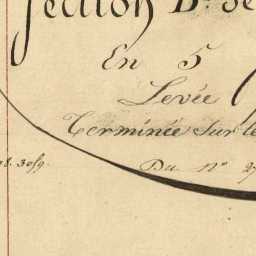 Section D. de
En 5
Levée
Terminée sur le
Du N° 2